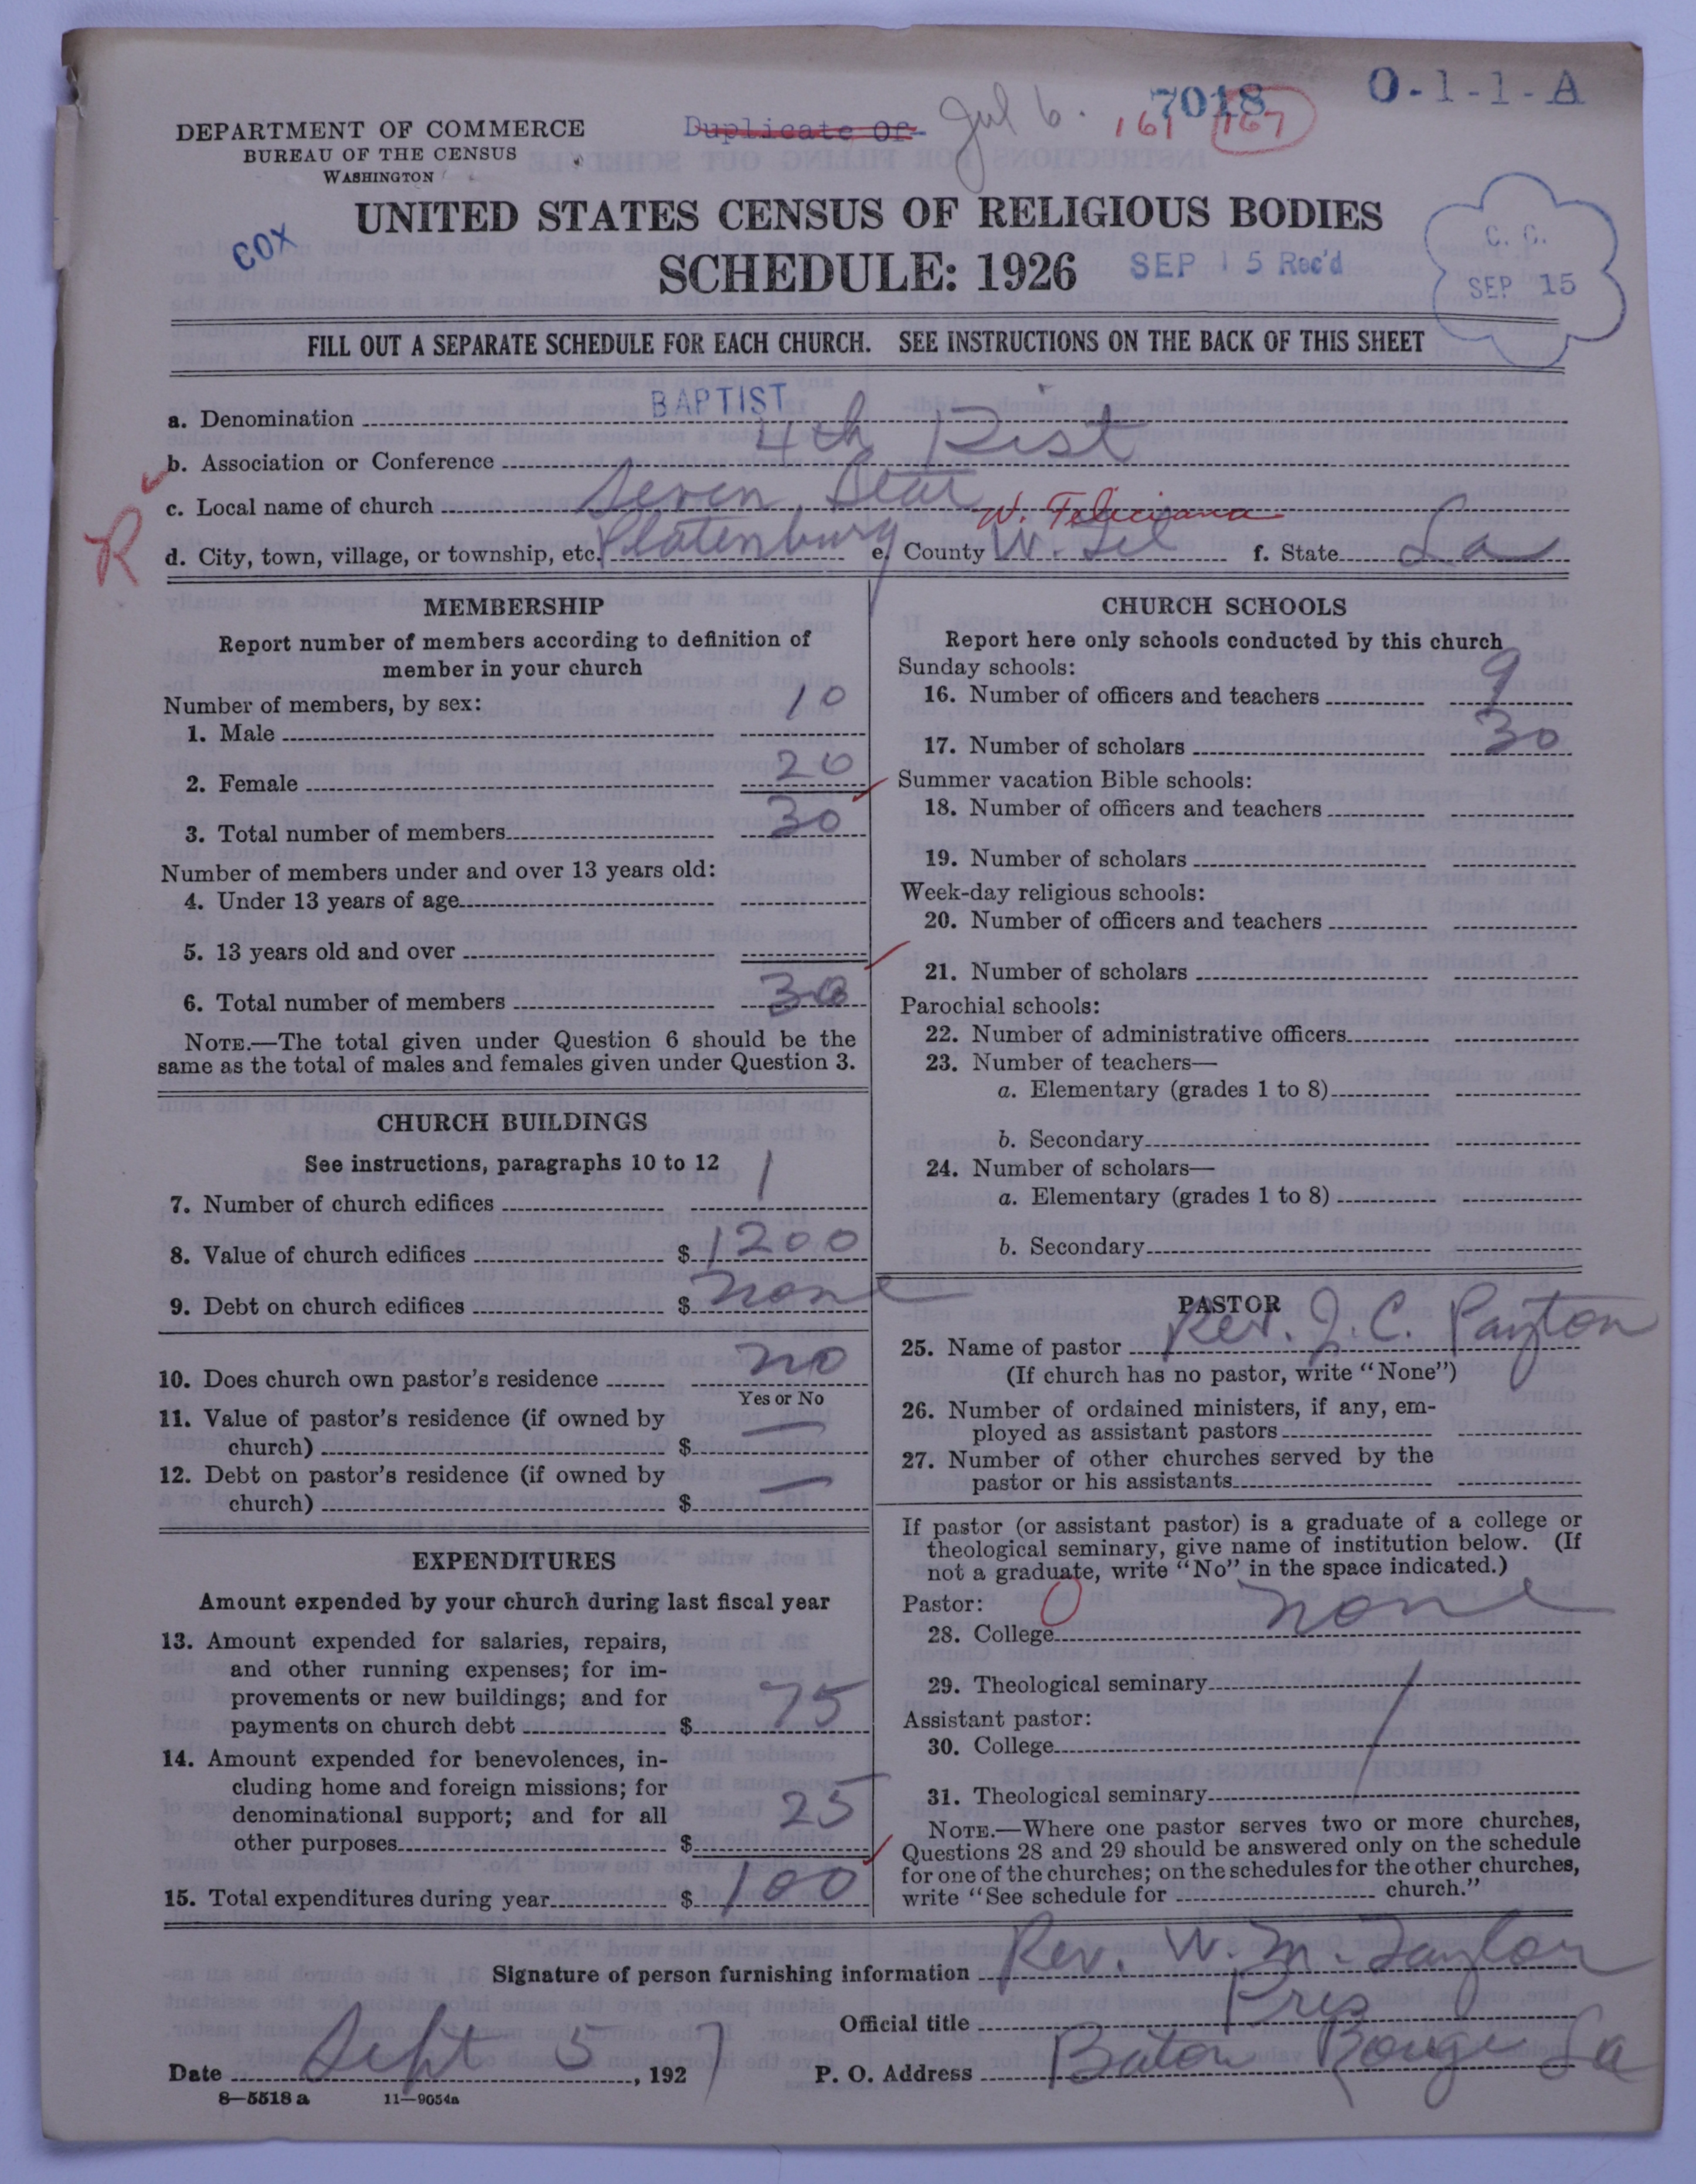 7018 O-1-1-A
DEPARTMENT OF COMMERCE Duplicate Of Jul 6. 161 167
BUREAU OF THE CENSUS
WASHINGTON
UNITED STATES CENSUS OF RELIGIOUS BODIES
COX
SCHEDULE: 1926 SEP 15 Rec'd
C. C.
SEP 15
FILL OUT A SEPARATE SCHEDULE FOR EACH CHURCH. SEE INSTRUCTIONS ON THE BACK OF THIS SHEET
a. Denomination BAPTIST
b. Association or Conference 4th Dist
c. Local name of church Seven Star
W. Feliciana
R d. City, town, village, or township, etc. Platenburg e. County W. Fel f. State La
MEMBERSHIP
Report number of members according to definition of
member in your church
Number of members, by sex:
1. Male 10
2. Female 20
3. Total number of members 30
Number of members under and over 13 years old:
4. Under 13 years of age
5. 13 years old and over
6. Total number of members 30
NOTE.—The total given under Question 6 should be the
same as the total of males and females given under Question 3.
CHURCH BUILDINGS
See instructions, paragraphs 10 to 12
7. Number of church edifices 1
8. Value of church edifices $ 1200
9. Debt on church edifices $ none
10. Does church own pastor's residence no
Yes or No
11. Value of pastor's residence (if owned by
church) $ —
12. Debt on pastor's residence (if owned by
church) $ —
EXPENDITURES
Amount expended by your church during last fiscal year
13. Amount expended for salaries, repairs,
and other running expenses; for im-
provements or new buildings; and for
payments on church debt $ 75
14. Amount expended for benevolences, in-
cluding home and foreign missions; for
denominational support; and for all
other purposes $ 25
15. Total expenditures during year $ 100
CHURCH SCHOOLS
Report here only schools conducted by this church
Sunday schools:
16. Number of officers and teachers 9
17. Number of scholars 30
Summer vacation Bible schools:
18. Number of officers and teachers
19. Number of scholars
Week-day religious schools:
20. Number of officers and teachers
21. Number of scholars
Parochial schools:
22. Number of administrative officers
23. Number of teachers—
a. Elementary (grades 1 to 8)
b. Secondary
24. Number of scholars—
a. Elementary (grades 1 to 8)
b. Secondary
PASTOR
25. Name of pastor Rev. J. C. Payton
(If church has no pastor, write "None")
26. Number of ordained ministers, if any, em-
ployed as assistant pastors
27. Number of other churches served by the
pastor or his assistants
If pastor (or assistant pastor) is a graduate of a college or
theological seminary, give name of institution below. (If
not a graduate, write "No" in the space indicated.)
Pastor: 0
28. College none
29. Theological seminary
Assistant pastor:
30. College
31. Theological seminary
NOTE.—Where one pastor serves two or more churches,
Questions 28 and 29 should be answered only on the schedule
for one of the churches; on the schedules for the other churches,
write "See schedule for church."
Signature of person furnishing information Rev. W. M. Taylor
Official title Pres
Date Sept 5, 1927 P. O. Address Baton Rouge La
8—5518 a 11—9054a